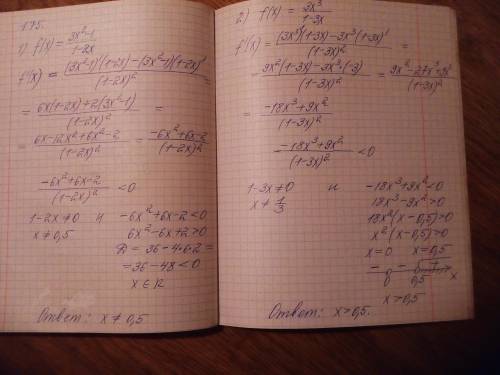 175.
1) f(x) = (3x²-1)/(1-2x)
f'(x) = ((3x²-1)'(1-2x) - (3x²-1)(1-2x)')/(1-2x)² =
= (6x(1-2x)+2(3x²-1))/(1-2x)² =
= (6x-12x²+6x²-2)/(1-2x)² = (-6x²+6x-2)/(1-2x)²
(-6x²+6x-2)/(1-2x)² < 0
1-2x≠0 и -6x²+6x-2<0
x≠0,5 6x²-6x+2>0
D = 36-4·6·2=
=36-48<0
x∈R
Ответ: x≠0,5
2) f(x) = 3x³/(1-3x)
f'(x) = ((3x³)'(1-3x)-3x³(1-3x)')/(1-3x)² =
= (9x²(1-3x)-3x³·(-3))/(1-3x)² = (9x²-27x³+9x³)/(1-3x)²
= (-18x³+9x²)/(1-3x)²
(-18x³+9x²)/(1-3x)² < 0
1-3x≠0 и -18x³+9x²<0
x≠1/3 18x³-9x²>0
18x²(x-0,5)>0
x²(x-0,5)>0
x=0 x=0,5
- - +
0 0,5 x
x>0,5
Ответ: x>0,5.